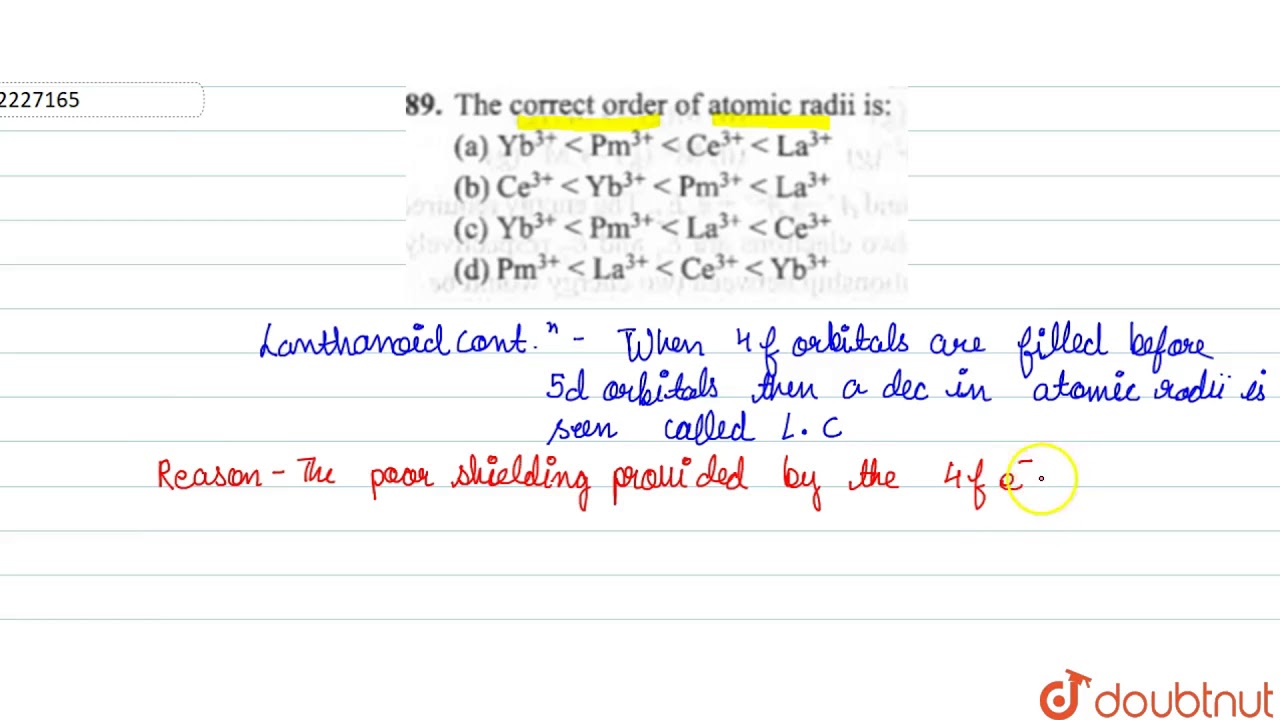 2227165
89. The correct order of atomic radii is:
(a) Yb³⁺ < Pm³⁺ < Ce³⁺ < La³⁺
(b) Ce³⁺ < Yb³⁺ < Pm³⁺ < La³⁺
(c) Yb³⁺ < Pm³⁺ < La³⁺ < Ce³⁺
(d) Pm³⁺ < La³⁺ < Ce³⁺ < Yb³⁺
Lanthanoid cont.ⁿ - When 4f orbitals are filled before
5d orbitals then a dec in atomic radii is
seen called L.C
Reason - The poor shielding provided by the 4f e⁻
doubtnut